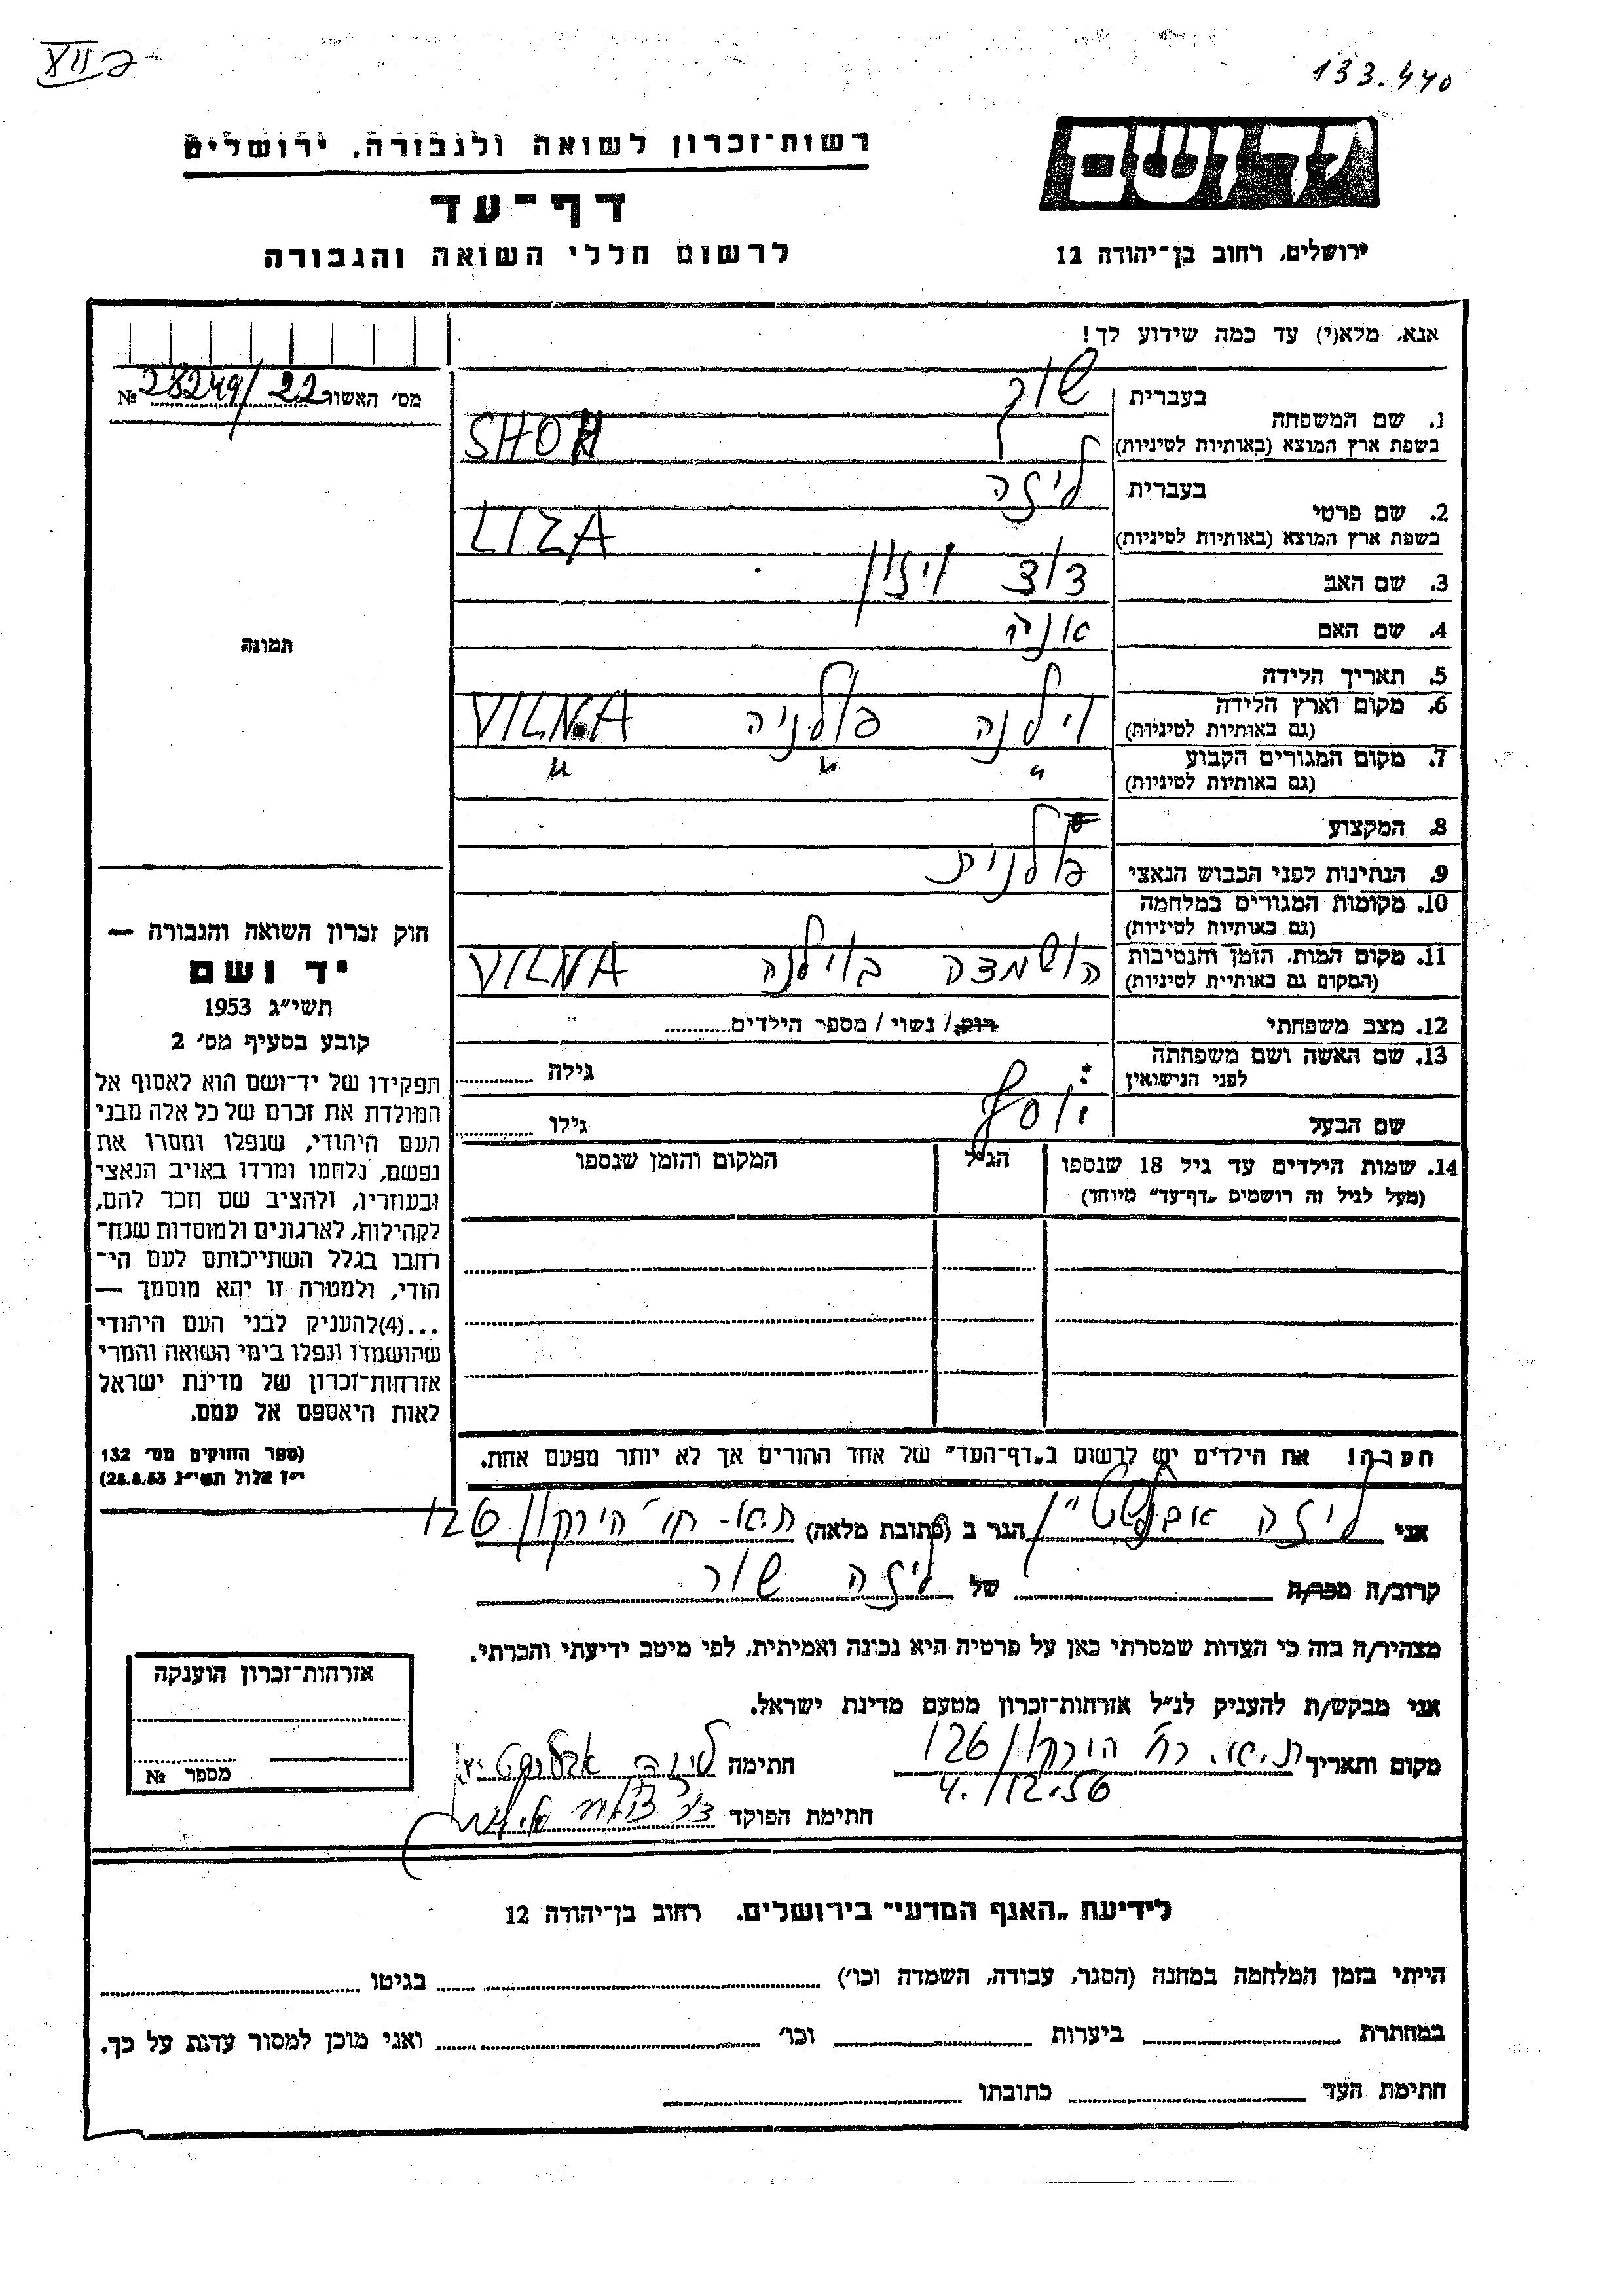 XII 2
133.440
יד ושם
רשות־זכרון לשואה ולגבורה, ירושלים
דף־עד
לרשום חללי השואה והגבורה
ירושלים, רחוב בן־יהודה 12
אנא, מלא(י) עד כמה שידוע לך!
מס' האשור 28249/22 №
1. שם המשפחה
בעברית שור
בשפת ארץ המוצא (באותיות לטיניות) SHOR
2. שם פרטי
בעברית ליזה
בשפת ארץ המוצא (באותיות לטיניות) LIZA
3. שם האב דוד וזון
4. שם האם אנה
5. תאריך הלידה
6. מקום וארץ הלידה וילנה פולניה VILNA
(גם באותיות לטיניות)
7. מקום המגורים הקבוע " " "
(גם באותיות לטיניות)
8. המקצוע
9. הנתינות לפני הכבוש הנאצי פולנית
10. מקומות המגורים במלחמה
(גם באותיות לטיניות)
11. מקום המות, הזמן והנסיבות הושמדה בוילנה VILNA
(המקום גם באותיית לטיניות)
12. מצב משפחתי רוק/ נשוי / מספר הילדים
13. שם האשה ושם משפחתה גילה
לפני הנישואין
שם הבעל יוסף גילו
14. שמות הילדים עד גיל 18 שנספו הגיל המקום והזמן שנספו
(מעל לגיל זה רושמים „דף־עד" מיוחד)
תמונה
חוק זכרון השואה והגבורה —
יד ושם
תשי"ג 1953
קובע בסעיף מס' 2
תפקידו של יד־ושם הוא לאסוף אל
המולדת את זכרם של כל אלה מבני
העם היהודי, שנפלו ומסרו את
נפשם, נלחמו ומרדו באויב הנאצי
ובעוזריו, ולהציב שם וזכר להם,
לקהילות, לארגונים ולמוסדות שנח־
רבו בגלל השתייכותם לעם הי־
הודי, ולמטרה זו יהא מוסמך —
...(4)להעניק לבני העם היהודי
שהושמדו ונפלו בימי השואה והמרי
אזרחות־זכרון של מדינת ישראל
לאות היאספם אל עמם.
(ספר החוקים מס' 132
י"ז אלול תשי"ג 28.8.53)
הערה! את הילדים יש לרשום ב„דף־העד" של אחד ההורים אך לא יותר מפעם אחת.
אני ליזה הגר ב (כתובת מלאה) ת.א. רח' הירקון 126
קרוב/ה מכר/ה של ליזה שור
מצהיר/ה בזה כי העדות שמסרתי כאן על פרטיה היא נכונה ואמיתית, לפי מיטב ידיעתי והכרתי.
אני מבקש/ת להעניק לנ"ל אזרחות־זכרון מטעם מדינת ישראל.
מקום ותאריך ת.א. רח' הירקון 126 חתימה ליזה
4.12.56
חתימת הפוקד
אזרחות־זכרון הוענקה
מספר №
לידיעת „האגף המדעי" בירושלים, רחוב בן־יהודה 12
הייתי בזמן המלחמה במחנה (הסגר, עבודה, השמדה וכו') בגיטו
במחתרת ביערות וכו' ואני מוכן למסור עדות על כך.
חתימת העד כתובתו